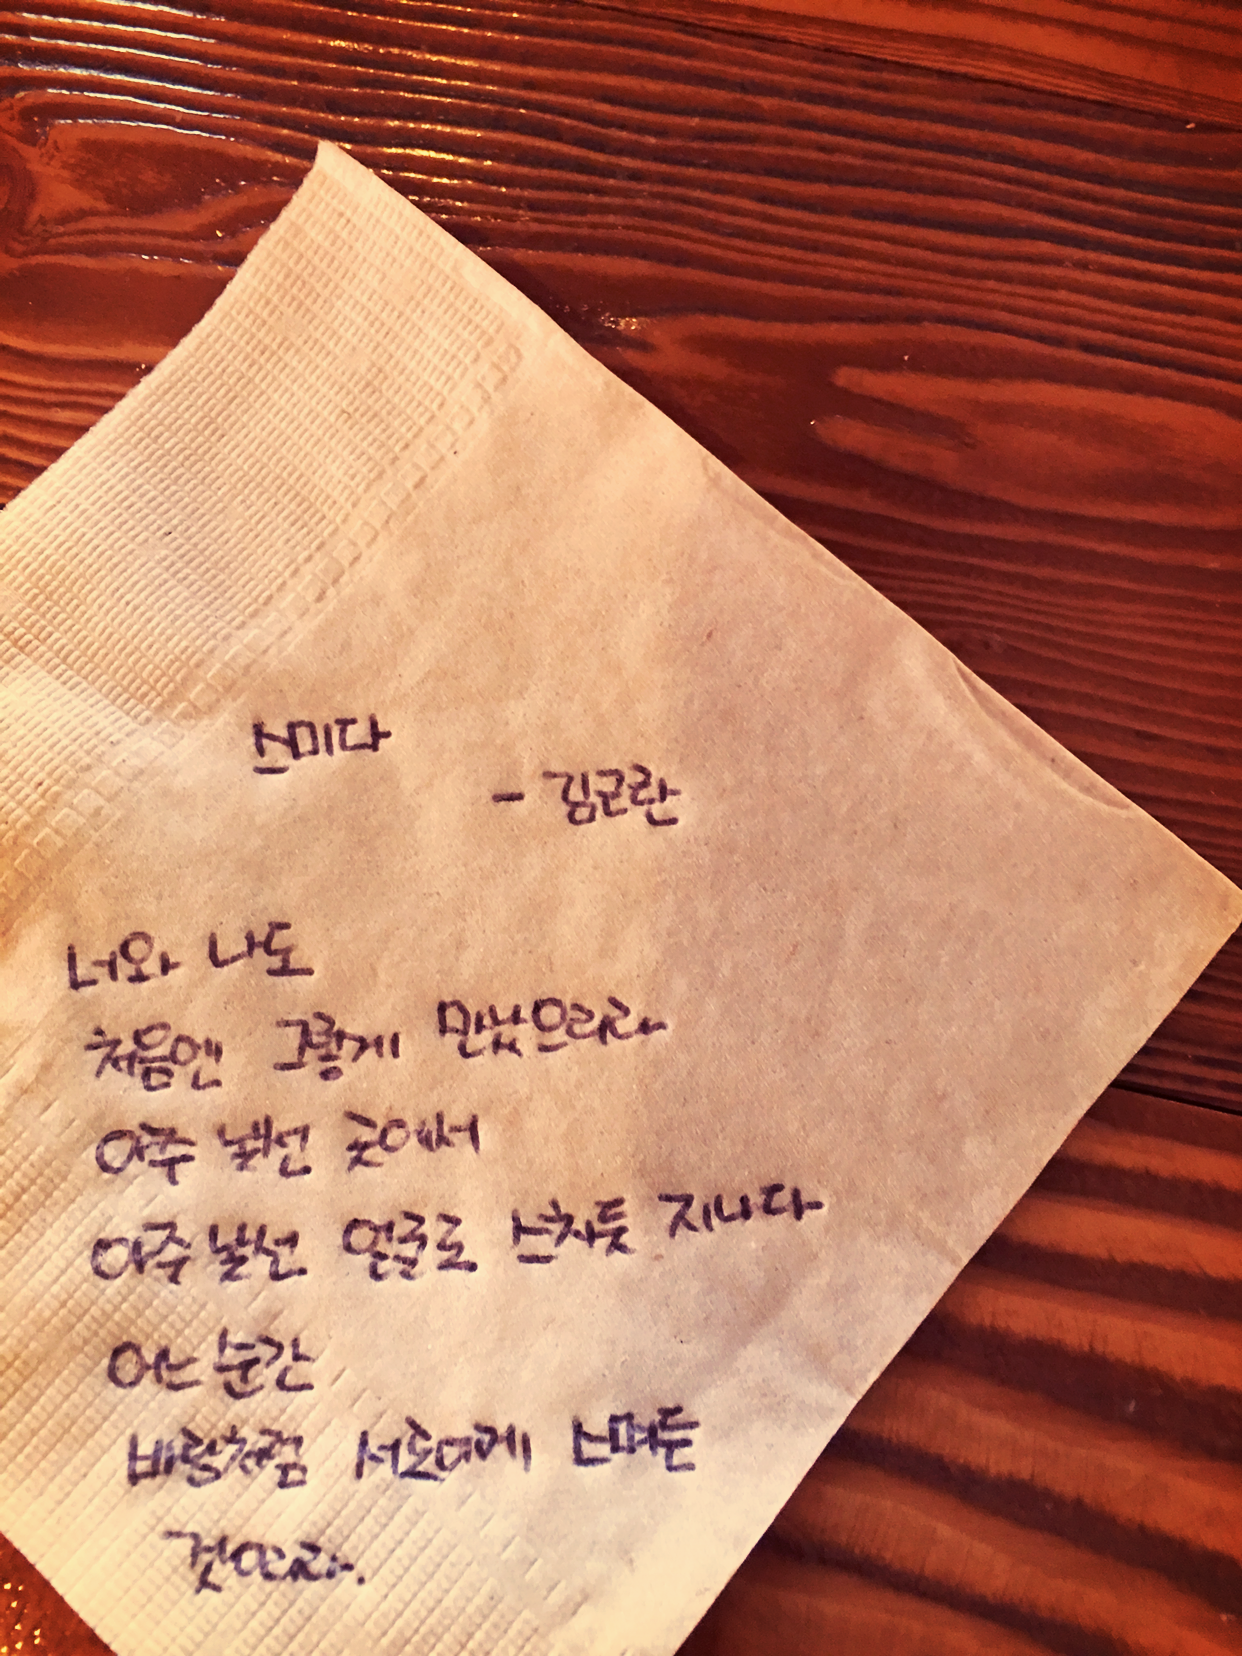 스미다
- 김근란
너와 나도
처음엔 그렇게 만났으리라
아주 낯선 곳에서
아주 낯선 얼굴로 스치듯 지나다
어느 순간
바람처럼 서로에게 스며든
것이리라.